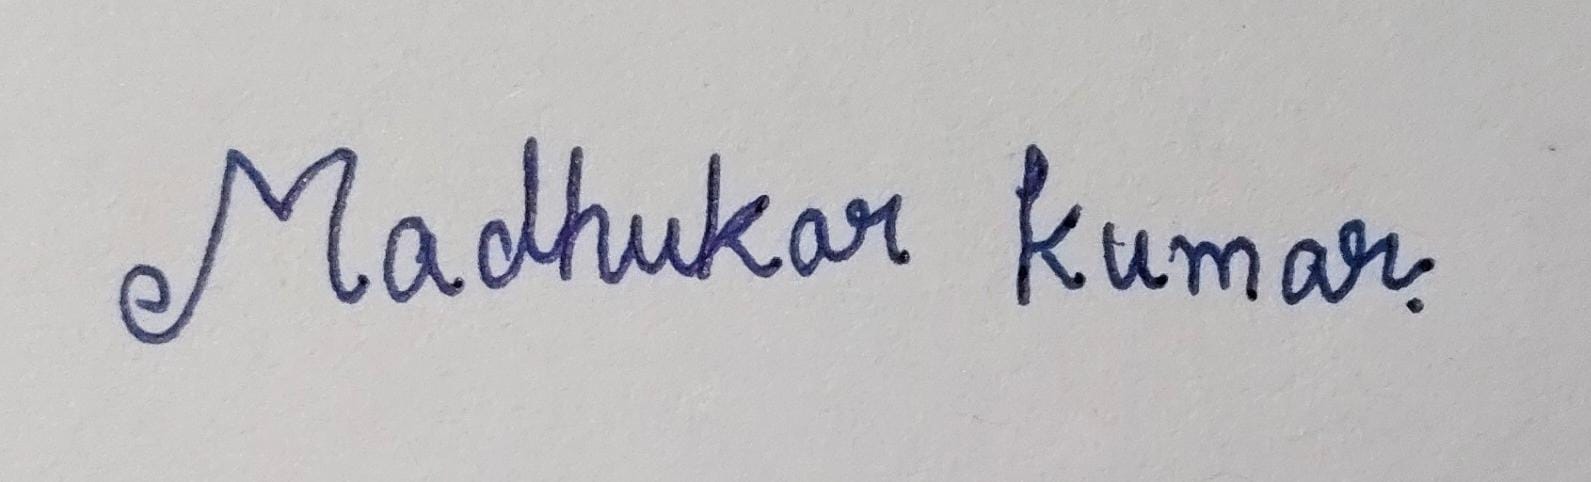 Madhukar Kumar.